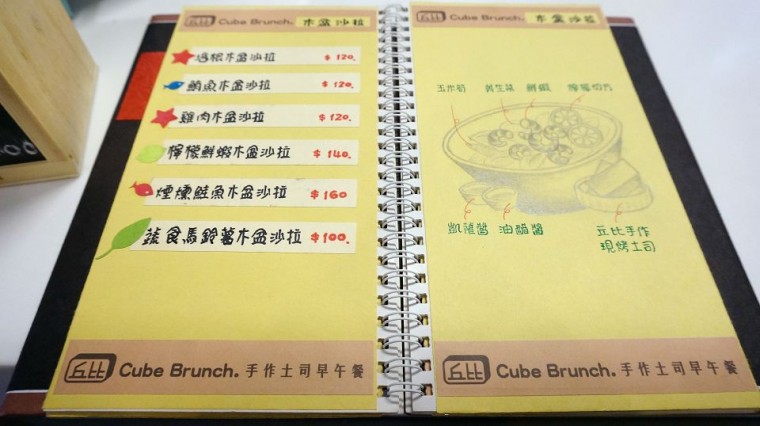 丘比 Cube Brunch. 木盆沙拉
培根木盆沙拉 $120.
鮪魚木盆沙拉 $120.
雞肉木盆沙拉 $120.
檸檬鮮蝦木盆沙拉 $140.
煙燻鮭魚木盆沙拉 $160
蔬食馬鈴薯木盆沙拉 $100.
丘比 Cube Brunch. 手作土司早午餐
丘比 Cube Brunch. 木盆沙拉
玉米筍 美生菜 鮮蝦 檸檬切片
凱薩醬 油醋醬
丘比手作
現烤土司
丘比 Cube Brunch. 手作土司早午餐